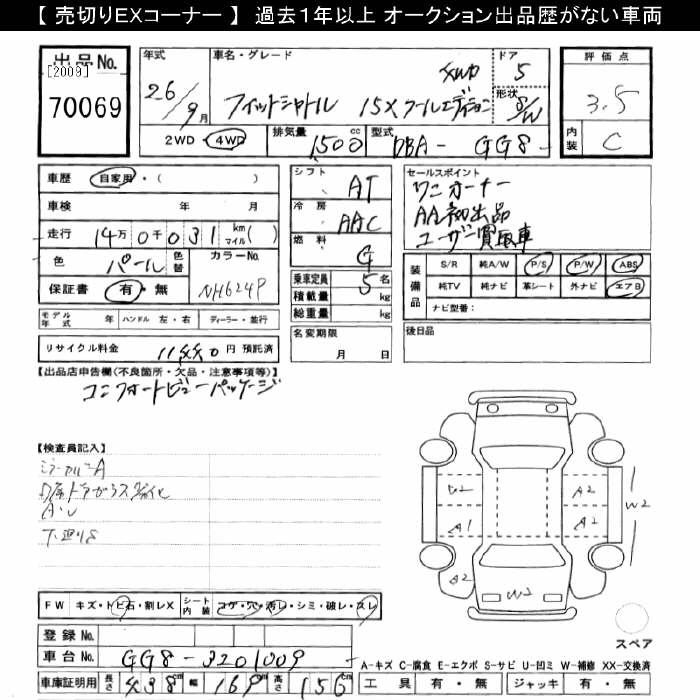 【 売切りEXコーナー 】 過去1年以上 オークション出品歴がない車両
出品No.
[2009]
70069
年式
26/9月
車名・グレード
フィットシャトル 15X クールエディション
4WD
ドア
5
形状
S/W
評価点
3.5
内装
C
2WD・4WD
排気量
1500 cc
型式
DBA- GG8-
車歴
自家用・( )
車検 年 月
走行 14万 0千 031 km マイル( )
色 パール 色替
カラーNo.
NH624P
保証書 有・無
モデル年式 年 ハンドル 左・右 ディーラー・並行
リサイクル料金 11440円 預託済
シフト
AT
冷房
AAC
燃料
G
乗車定員 5 名
積載量 kg
総重量 kg
名変期限
月 日
セールスポイント
ワンオーナー
AA初出品
ユーザー買取車
装備品
S/R 純A/W P/S P/W ABS
純TV 純ナビ 革シート 外ナビ エアB
ナビ型番:
後日品
【出品店申告欄(不良箇所・欠品・注意事項等)】
コンフォートビューパッケージ
【検査員記入】
A・U
下廻りS
W2
A1
A2
A2
A2
W2
W2
スペア
FW キズ・トビ石・割レX シート内装 コゲ・穴・汚レ・シミ・破レ・スレ
登録No.
車台No. GG8-3201009
車庫証明用 長さ 438cm 幅 169cm 高さ 156cm
A-キズ C-腐食 E-エクボ S-サビ U-凹ミ W-補修 XX-交換済
工具 有・無 ジャッキ 有・無